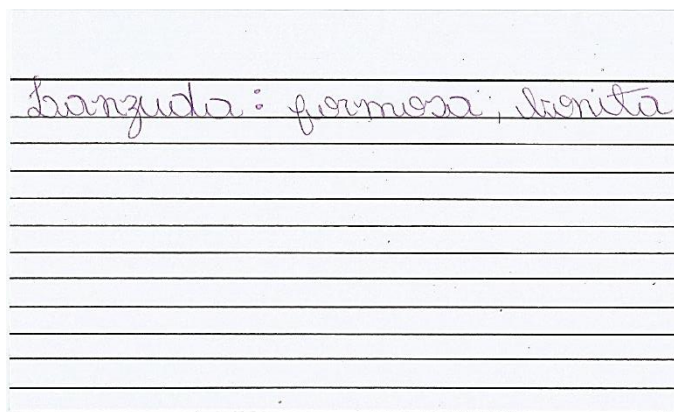 Lanzuda: formosa; bonita